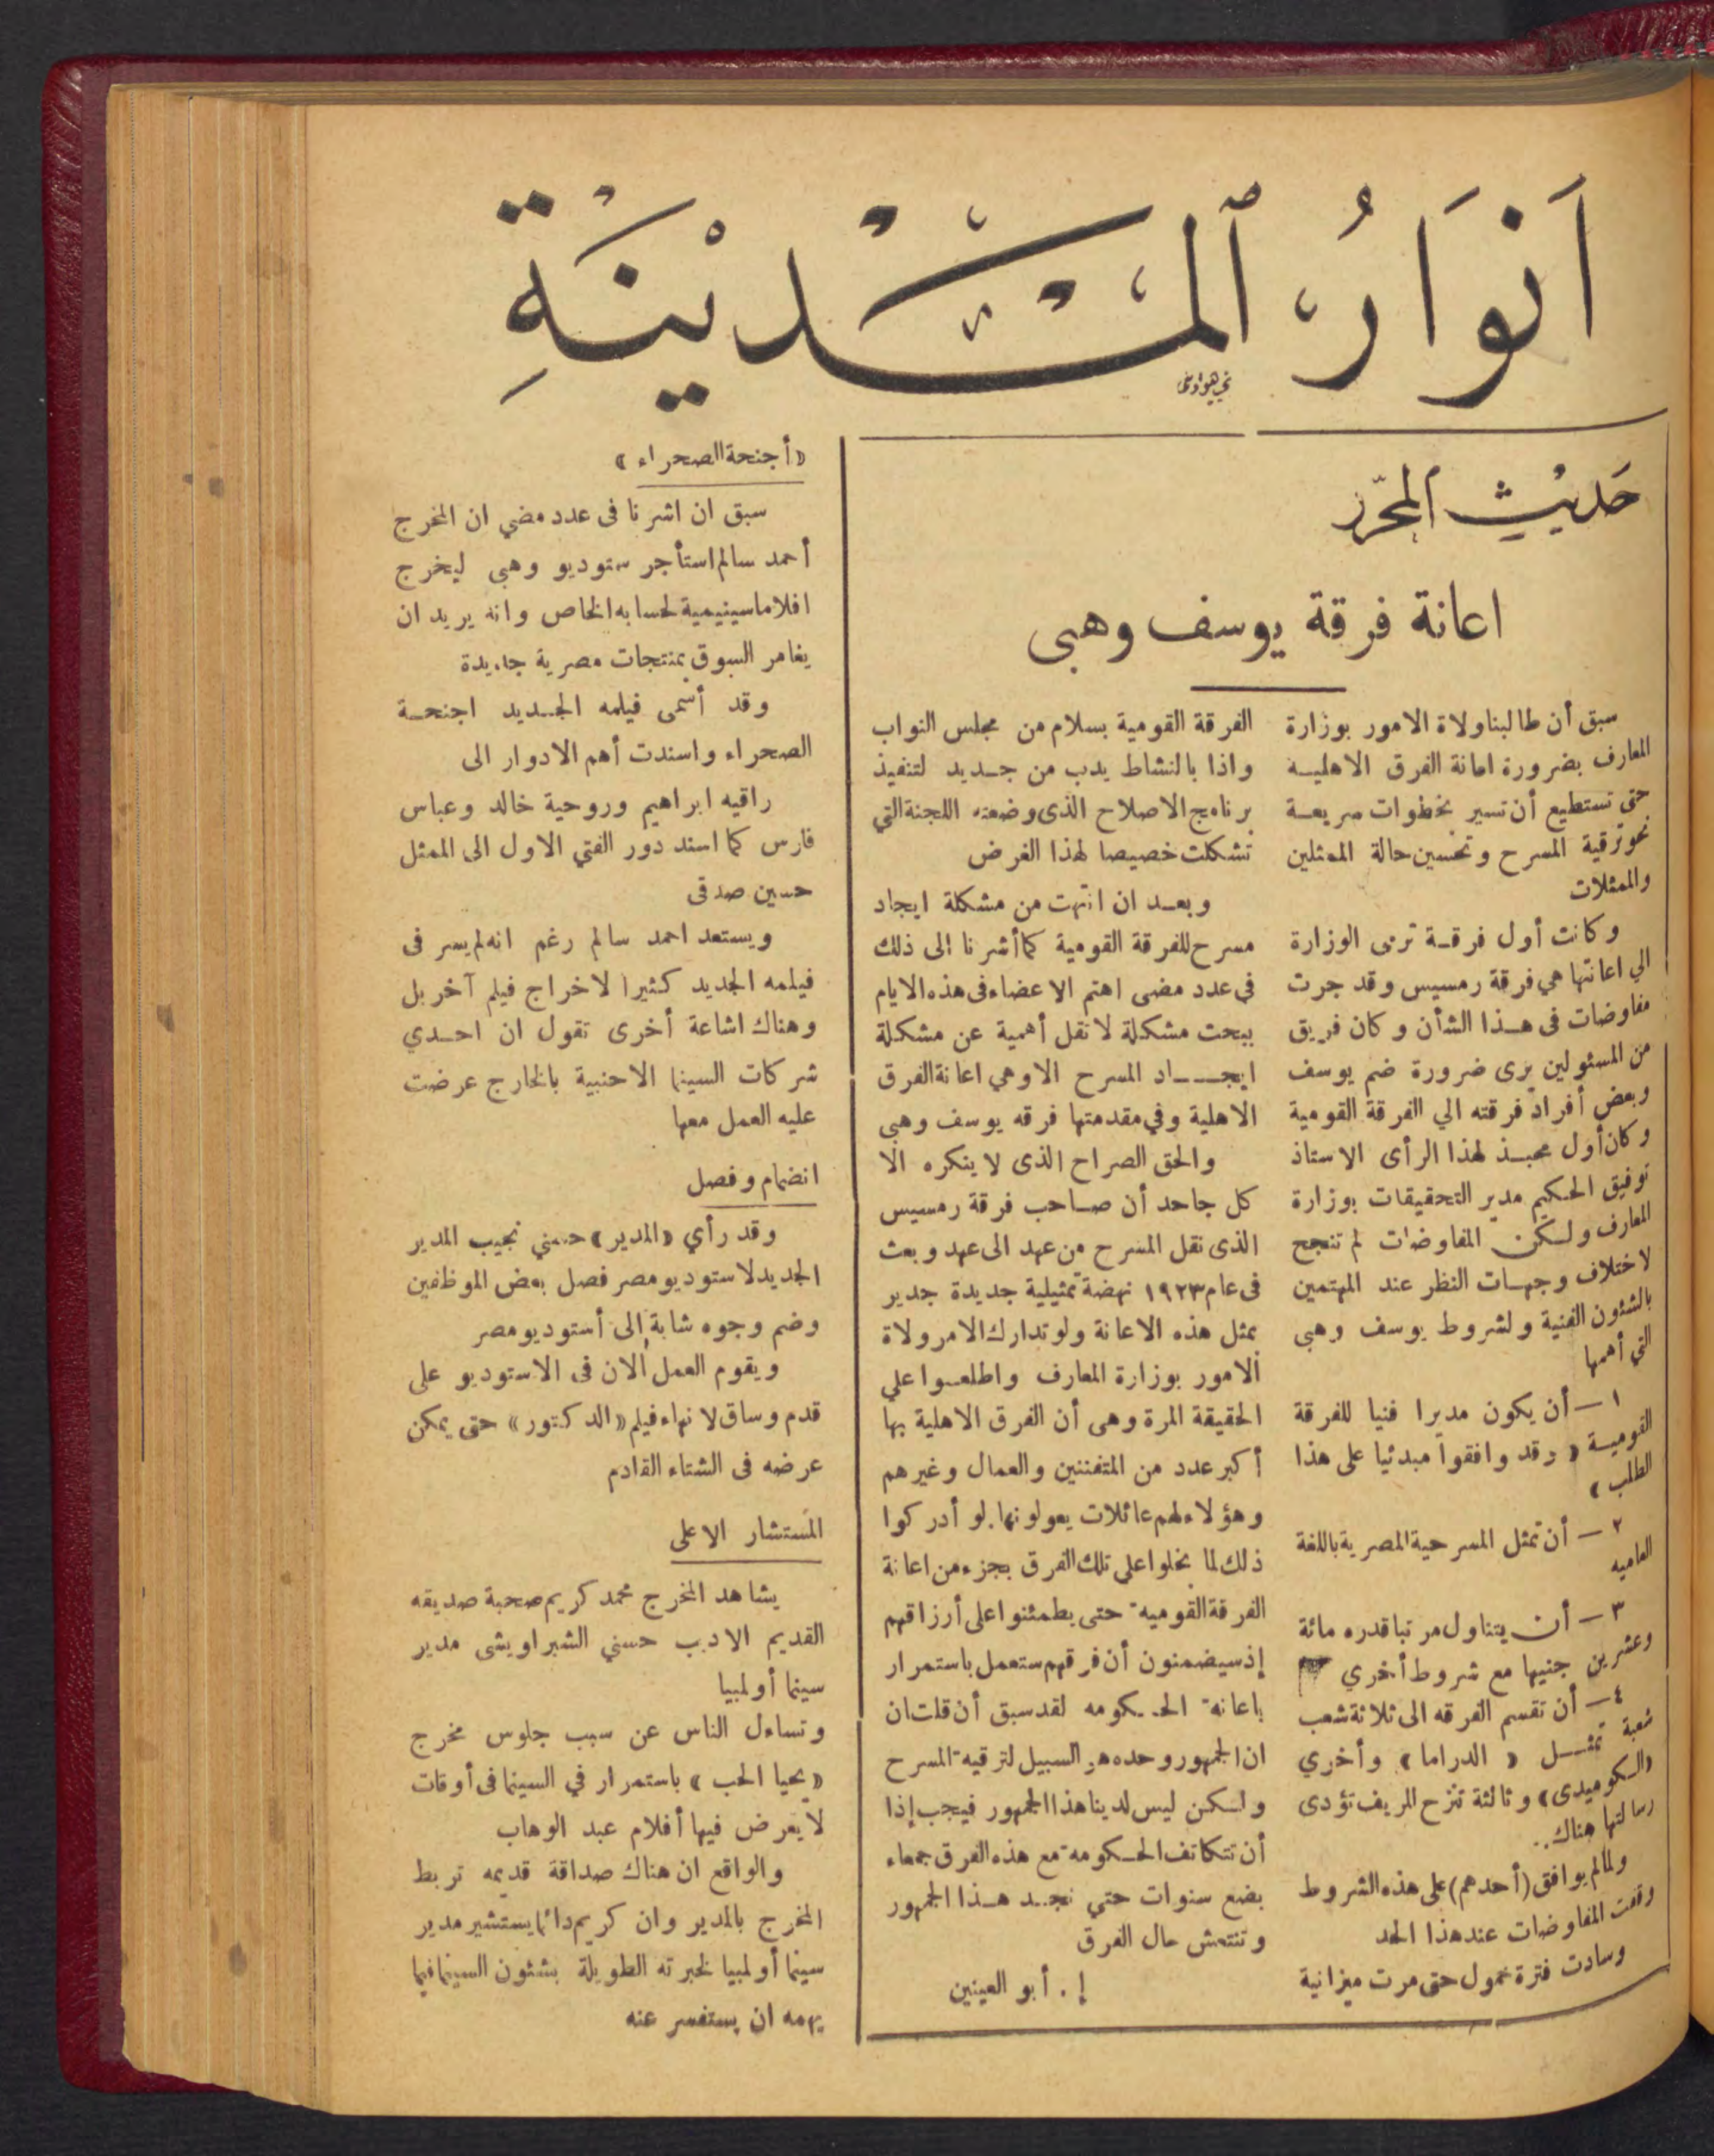 أنوار المدينة
حديث المحرر
اعانة فرقة يوسف وهبى
سبق أن طالبنا ولاة الامور بوزارة
المعارف بضرورة اعانة الفرق الاهلية
حتى تستطيع أن تسير بخطوات سريعة
نحو ترقية المسرح وتحسين حالة الممثلين
والممثلات
وكانت أول فرقة ترى الوزارة
الي اعانتها هي فرقة رمسيس وقد جرت
مفاوضات فى هذا الشأن وكان فريق
من المسئولين يرى ضرورة ضم يوسف
وبعض أفراد فرقته الي الفرقة القومية
وكان أول محبذ لهذا الرأى الاستاذ
توفيق الحكيم مدير التحقيقات بوزارة
المعارف ولكن المفاوضات لم تنجح
لاختلاف وجهات النظر عند المهتمين
بالشئون الفنية ولشروط يوسف وهبى
التي أهمها
١ — أن يكون مديرا فنيا للفرقة
القومية « وقد وافقوا مبدئيا على هذا
الطلب »
٢ — أن تمثل المسرحية المصرية باللغة
العاميه
٣ — أن يتناول مرتبا قدره مائة
وعشرين جنيها مع شروط أخري
٤ — أن تقسم الفرقه الى ثلاثة شعب
شعبة تمثل « الدراما » وأخري
«الكوميدى» وثالثة تنزح للريف تؤدى
رسالتها هناك..
ولما لم يوافق (أحدهم) على هذه الشروط
وقفت المفاوضات عند هذا الحد
وسادت فترة خمول حتى مرت ميزانية
الفرقة القومية بسلام من مجلس النواب
واذا بالنشاط يدب من جديد لتنفيذ
برنامج الاصلاح الذى وضعته اللجنة التي
تشكلت خصيصا لهذا الغرض
وبعد ان انتهت من مشكلة ايجاد
مسرح للفرقة القومية كما أشرنا الى ذلك
في عدد مضى اهتم الاعضاء فى هذه الايام
ببحث مشكلة لا تقل أهمية عن مشكلة
ايجاد المسرح الا وهي اعانة الفرق
الاهلية وفي مقدمتها فرقه يوسف وهبى
والحق الصراح الذى لا ينكره الا
كل جاحد أن صاحب فرقة رمسيس
الذى نقل المسرح من عهد الى عهد وبعث
فى عام ١٩٢٣ نهضة تمثيلية جديدة جدير
بمثل هذه الاعانة ولو تدارك الامر ولاة
الامور بوزارة المعارف واطلعوا علي
الحقيقة المرة وهى أن الفرق الاهلية بها
أكبر عدد من المتفننين والعمال وغيرهم
وهؤلاء لهم عائلات يعولونها. لو أدركوا
ذلك لما بخلوا على تلك الفرق بجزء من اعانة
الفرقة القوميه حتى يطمئنوا على أرزاقهم
إذ سيضمنون أن فرقهم ستعمل باستمرار
باعانة الحكومه لقد سبق أن قلت ان
ان الجمهور وحده هو السبيل لترقيه المسرح
ولكن ليس لدينا هذا الجمهور فيجب إذا
أن تتكاتف الحكومه مع هذه الفرق جمعاء
بضع سنوات حتي نجد هذا الجمهور
وتنتعش حال الفرق
إ. أبو العينين
«أجنحة الصحراء»
سبق ان اشرنا فى عدد مضي ان المخرج
أحمد سالم استأجر ستوديو وهبى ليخرج
افلاما سينيمية لحسابه الخاص وانه يريد ان
يغامر السوق بمنتجات مصرية جديدة
وقد أسمى فيلمه الجديد اجنحة
الصحراء واسندت أهم الادوار الى
راقيه ابراهيم وروحية خالد وعباس
فارس كما اسند دور الفتي الاول الى الممثل
حسين صدقى
ويستعد احمد سالم رغم انه لم يسر فى
فيلمه الجديد كثيرا لاخراج فيلم آخر بل
وهناك اشاعة أخرى تقول ان احدي
شركات السينما الاجنبية بالخارج عرضت
عليه العمل معها
انضمام وفصل
وقد رأي «المدير» حسني نجيب المدير
الجديد لاستوديو مصر فصل بعض الموظفين
وضم وجوه شابة إلى أستوديو مصر
ويقوم العمل الان فى الاستوديو على
قدم وساق لانهاء فيلم «الدكتور» حتى يمكن
عرضه فى الشتاء القادم
المستشار الاعلى
يشاهد المخرج محمد كريم صحبة صديقه
القديم الاديب حسني الشبراويشى مدير
سينما أولمبيا
وتساءل الناس عن سبب جلوس مخرج
«يحيا الحب» باستمرار في السينما فى أوقات
لا يعرض فيها أفلام عبد الوهاب
والواقع ان هناك صداقة قديمه تربط
المخرج بالمدير وان كريم دائما يستشير مدير
سينما أولمبيا لخبرته الطويلة بشئون السينما فيما
يهمه ان يستفسر عنه